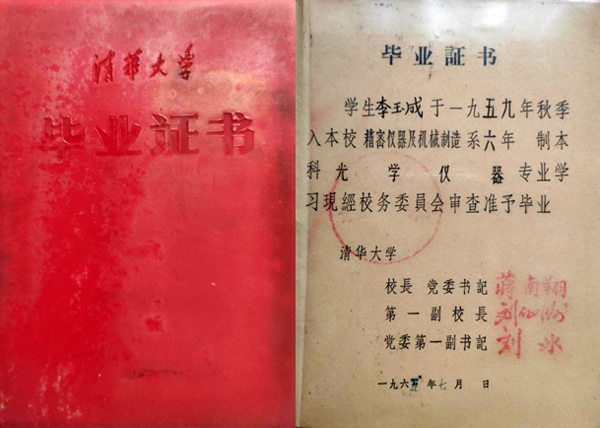 清华大学
毕业证书
毕业証书
学生李玉成于一九五九年秋季
入本校精密仪器及机械制造系六年制本
科光学仪器专业学
习現經校务委員会审查准予毕业
清华大学
校長党委书記蒋南翔
第一副校長刘仙洲
党委第一副书記刘冰
一九六五年七月日